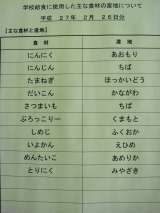 学校給食に使用した主な食材の産地について
平成 27年 2月 26日分
【主な食材と産地】
食材 産地
にんにく あおもり
にんじん ちば
たまねぎ ほっかいどう
だいこん かながわ
さつまいも ちば
ぶろっこりー くまもと
しめじ ふくおか
いよかん えひめ
めんたいこ あめりか
とりにく みやざき